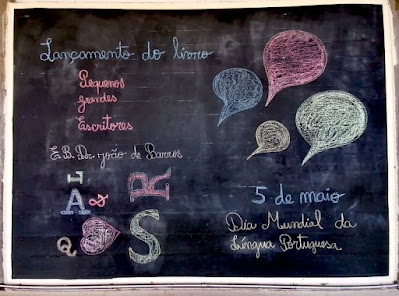 Lançamento do livro
Pequenos
grandes
Escritores
E.B. Dr. João de Barros
L
A s R
Q S
5 de maio
Dia Mundial da
Língua Portuguesa